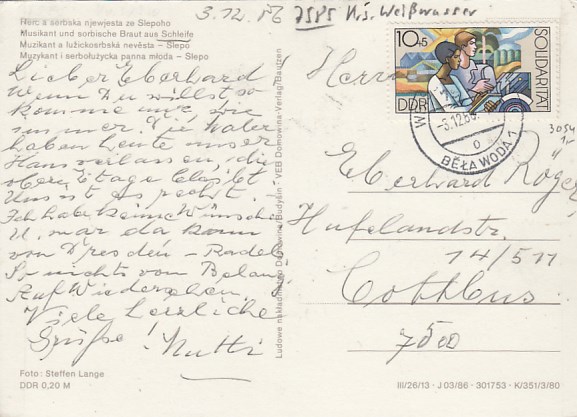 3.12.86 7585 Krs. Weißwasser
Herc a serbska njewjesta ze Slepoho
Musikant und sorbische Braut aus Schleife
Muzikant a lužickosrbská nevěsta – Slepo
Muzykant i serbołużycka panna młoda – Slepo
Lieber Eberhard
Wenn Du willst so
komme nur. Die
haben heute unser
Haus verlassen, die
obere Etage
Uns ist es recht.
Ich habe keine Wünsche
U. mar da kann
von Dresden –
So nichts von Belang
Auf Wiedersehen.
Viele herzliche
Grüße! Mutti
Foto: Steffen Lange
DDR 0,20 M
Ludowe nakładnistwo Domowina Budyšin · VEB Domowina-Verlag Bautzen
10+5
SOLIDARITÄT
DDR
BĚŁA WODA 1
3054
Herrn
Eberhard Roger
Hufelandstr.
14/511
Cottbus
7500
III/26/13 · J 03/86 · 301753 · K/351/3/80